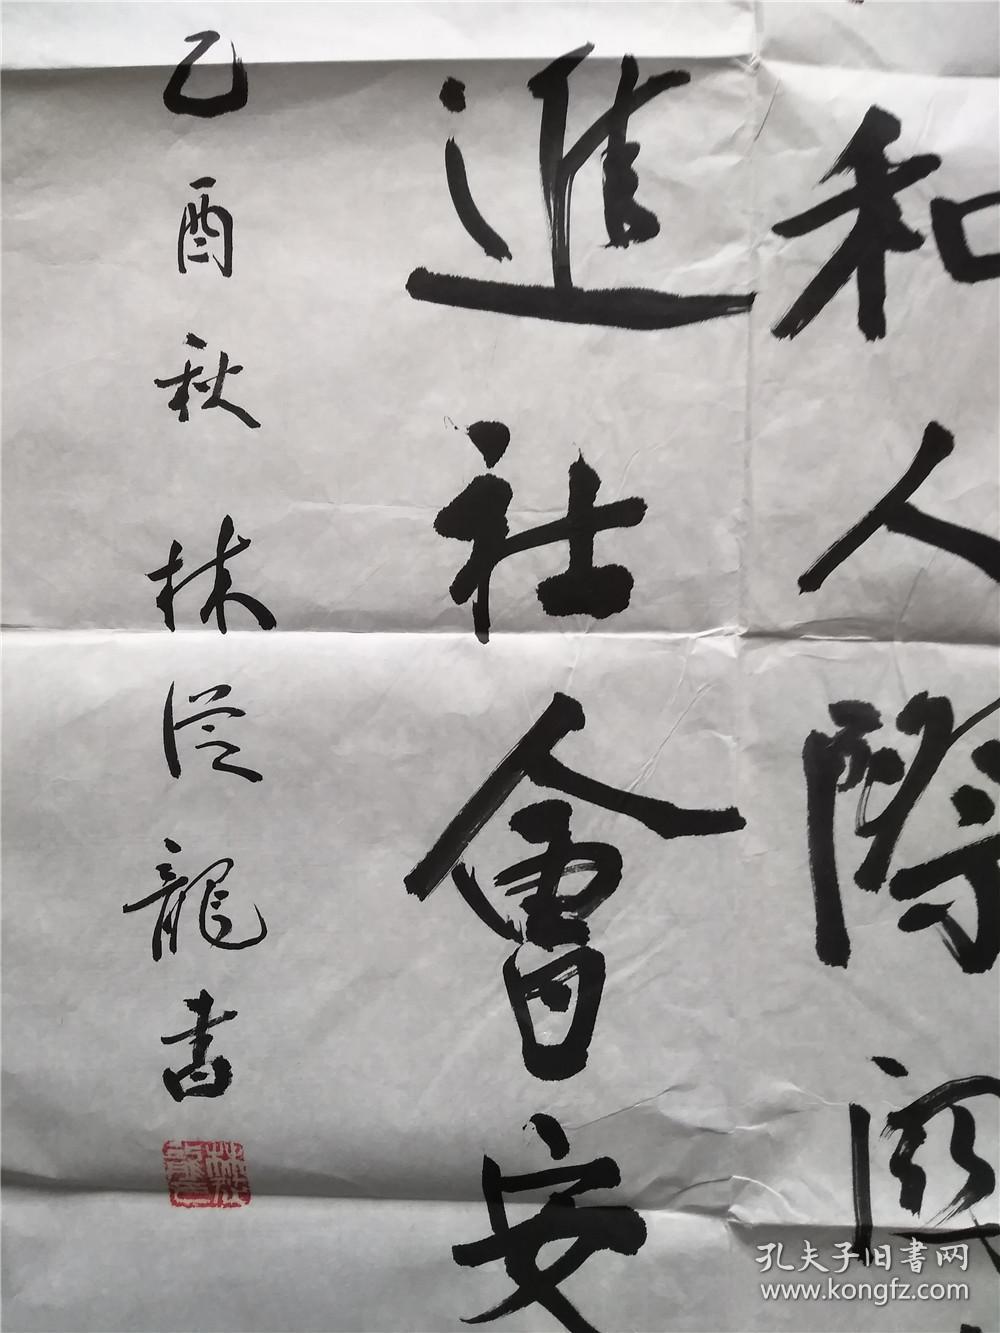 和人際
進社會安
乙酉秋林從龍書
孔夫子旧書网
www.kongfz.com